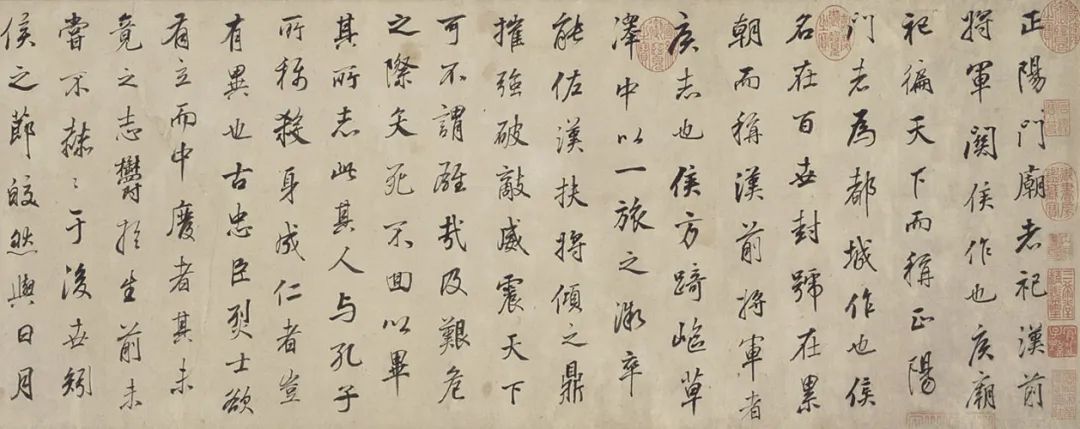 正陽門廟者祀漢前
將軍關侯作也侯廟
祀徧天下而稱正陽
門者為都城作也侯
名在百世封號在累
朝而稱漢前將軍者
侯志也侯方踦嶇草
澤中以一旅之微卒
能佐漢扶將傾之鼎
摧強破敵威震天下
可不謂雄哉及艱危
之際矢死不回以畢
其所志此其人与孔子
所稱殺身成仁者豈
有異也古忠臣烈士欲
有立而中廢者其未
竟之志鬱於生前未
嘗不揚〻于後世矧
侯之節皎然與日月